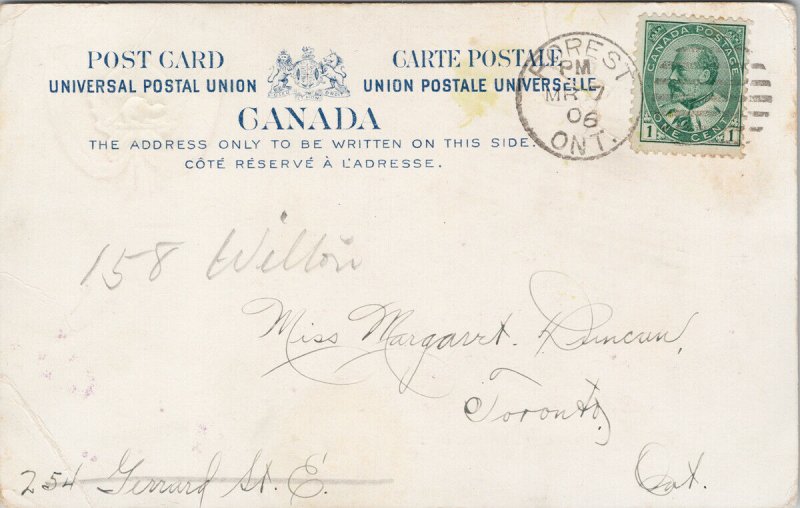 POST CARD
CARTE POSTALE
UNIVERSAL POSTAL UNION
UNION POSTALE UNIVERSELLE
CANADA
THE ADDRESS ONLY TO BE WRITTEN ON THIS SIDE.
CÔTÉ RÉSERVÉ À L'ADRESSE.
FOREST
PM
MR 7
06
ONT.
CANADA POSTAGE
1 ONE CENT 1
158 Wilton
Miss Margaret. Duncan,
Toronto,
254 Gerrard St. E.
Ont.